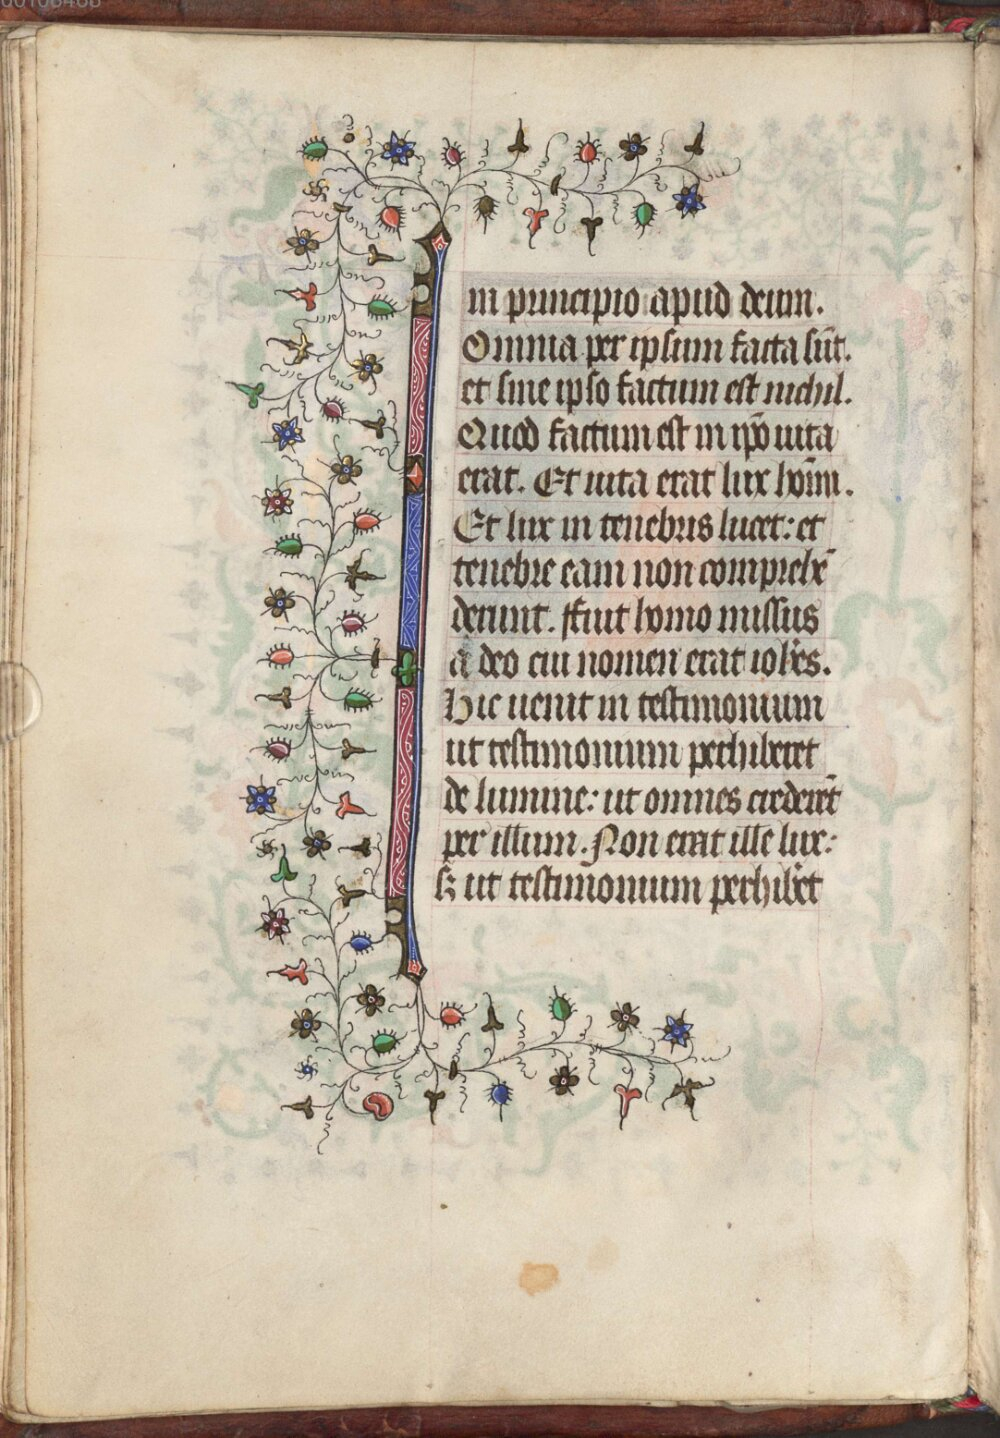 in principio apud deum.
Omnia per ipsum facta sūt.
et sine ipso factum est nichil.
Quod factum est in ip̄o uita
erat. Et uita erat lux hoīm.
Et lux in tenebris lucet: et
tenebre eam non comprehē
derunt. ffuit homo missus
a deo cui nomen erat ioh̄es.
Hic uenit in testimonium
ut testimonium perhiberet
de lumine: ut omnes crederēt
per illum. Non erat ille lux:
sꝫ ut testimonium perhib̄et